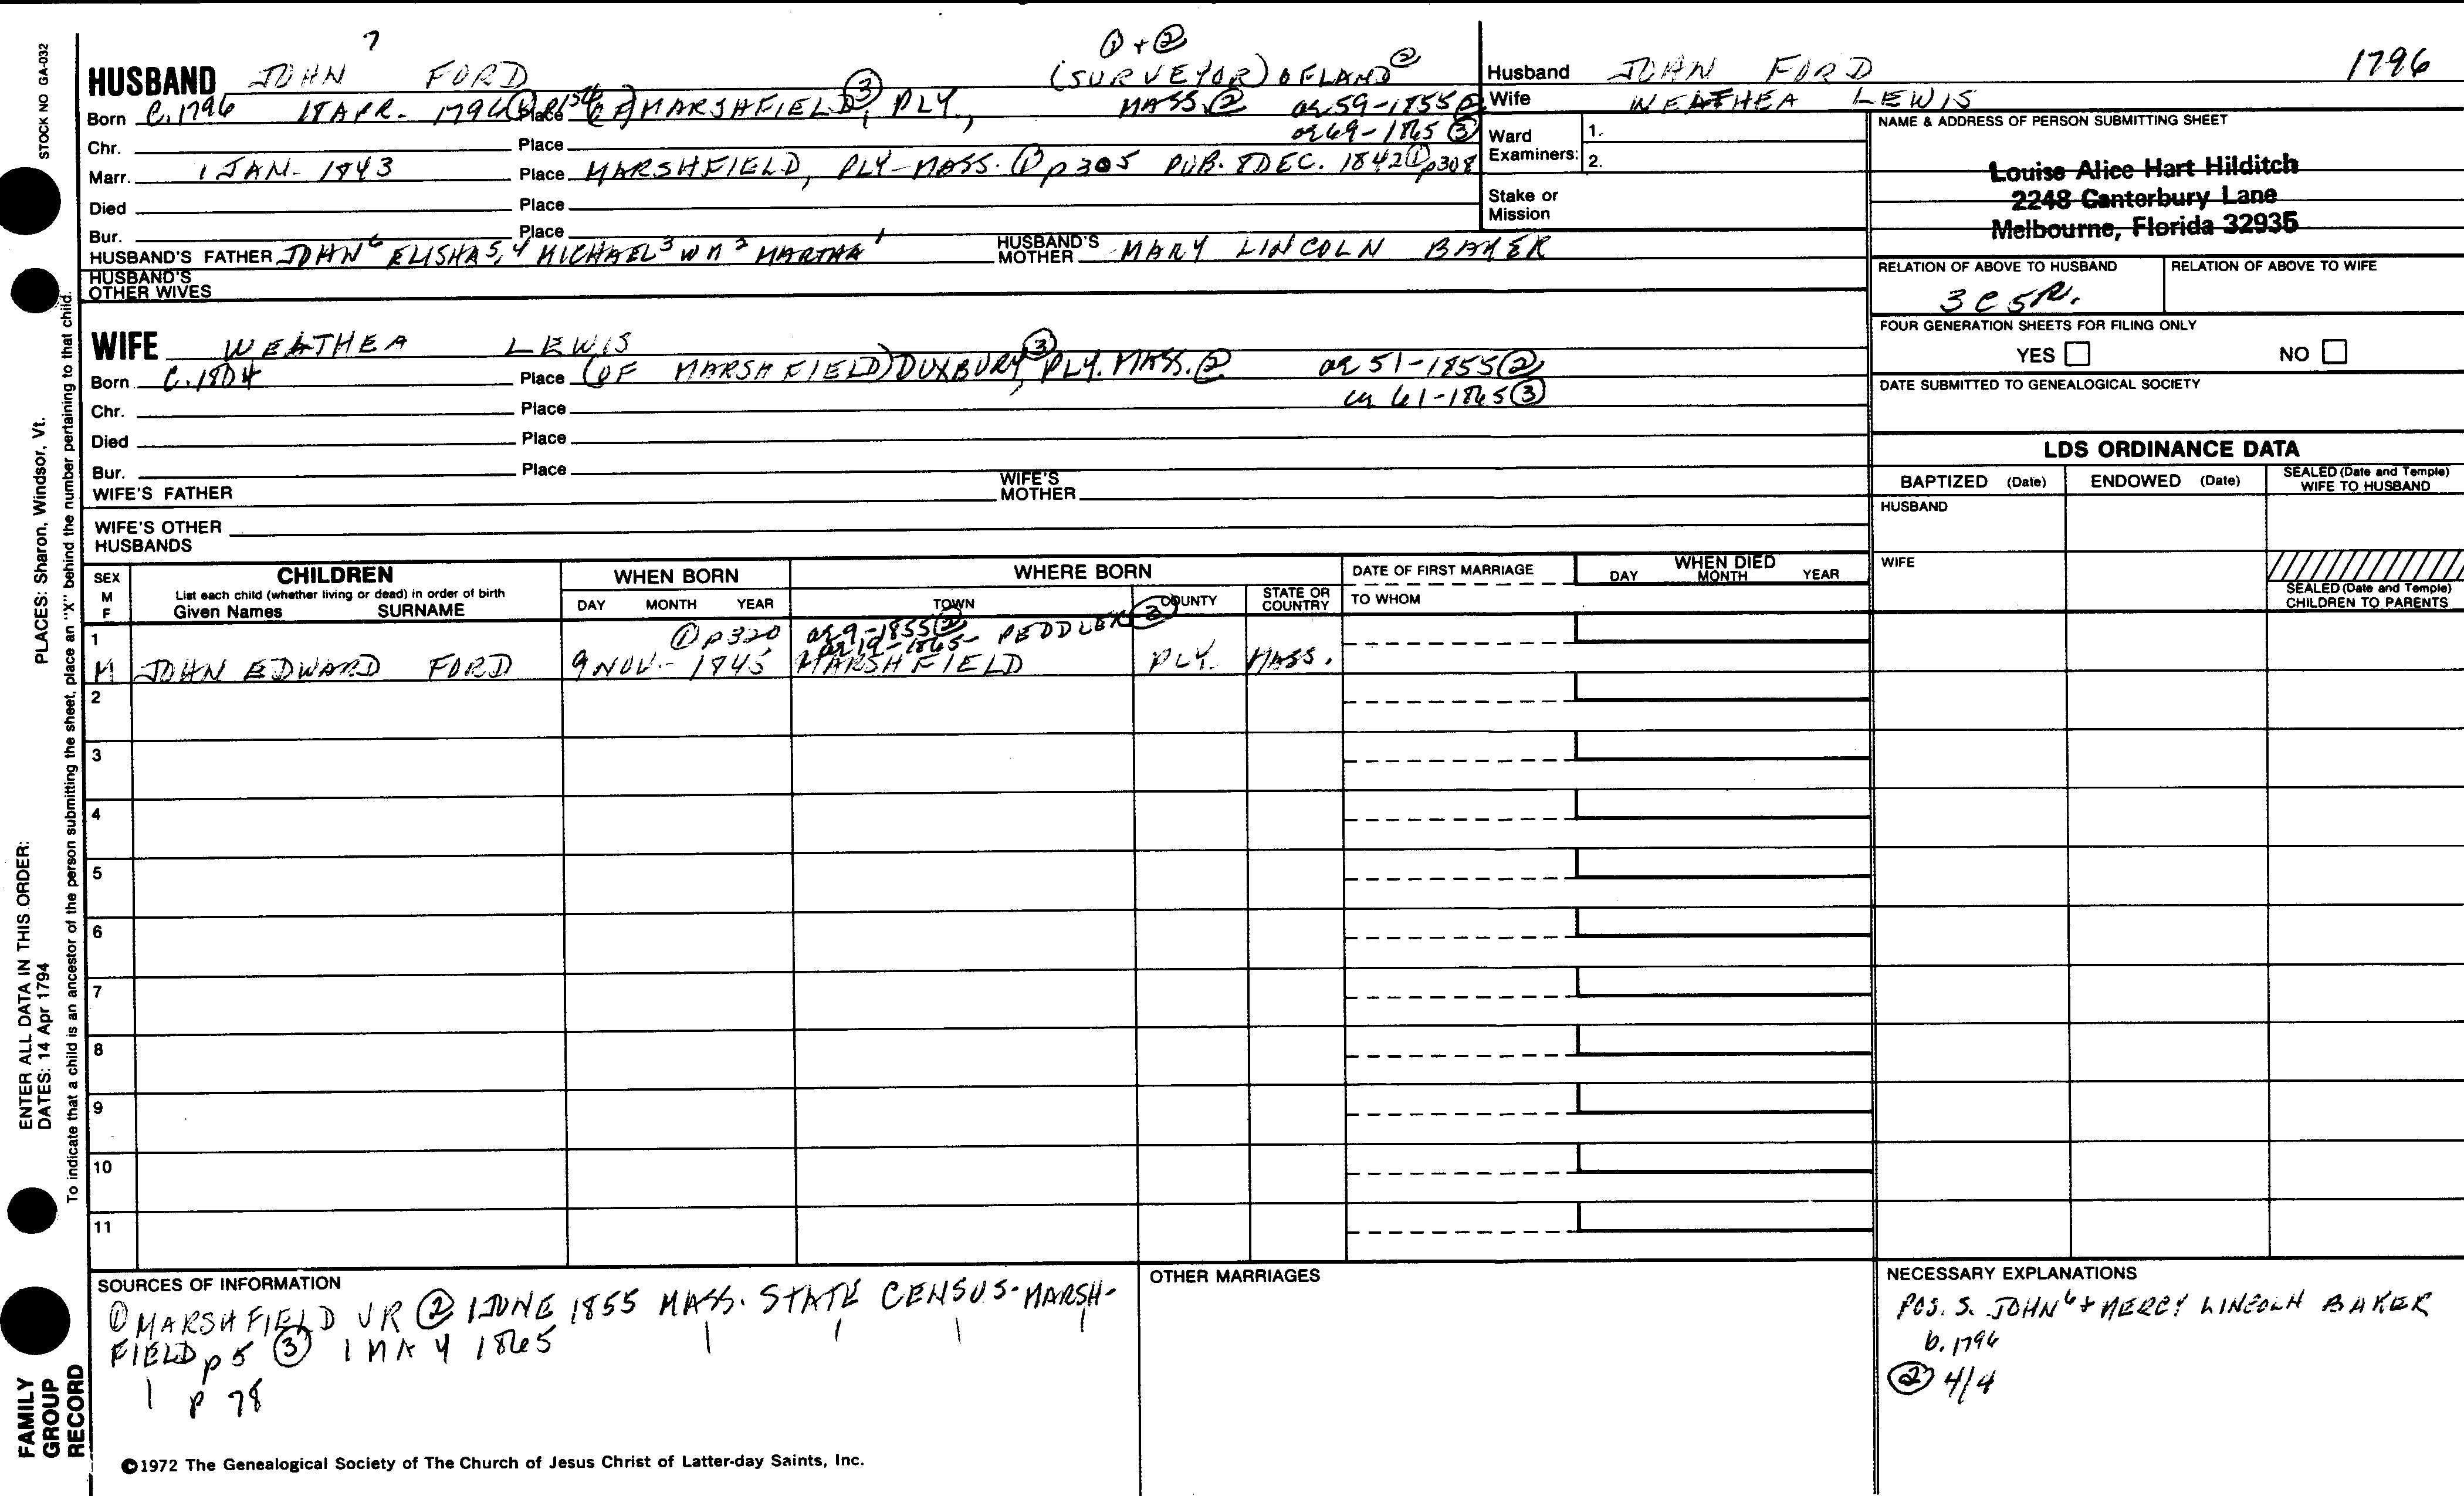 7
① + ②
HUSBAND JOHN FORD (SURVEYOR) OF LAND ②
Born C. 1796 18 APR. 1796 ① Place (OF) MARSHFIELD ③, PLY., MASS. ② ae 59-1855 ②
ae 69-1865 ③
Chr. Place
Marr. 1 JAN. 1843 Place MARSHFIELD, PLY-MASS. ① p305 PUB. 8 DEC. 1842 ① p308
Died Place
Bur. Place
HUSBAND'S FATHER JOHN 6 ELISHA 5, 4 MICHAEL 3 WM 2 MARTHA 1 HUSBAND'S MOTHER MARY LINCOLN BAKER
HUSBAND'S OTHER WIVES
WIFE WEATHEA LEWIS
Born C. 1804 Place (OF MARSHFIELD) DUXBURY ③, PLY. MASS. ② ae 51-1855 ②
ae 61-1865 ③
Chr. Place
Died Place
Bur. Place
WIFE'S FATHER WIFE'S MOTHER
WIFE'S OTHER HUSBANDS
Husband JOHN FORD 1796
Wife WEATHEA LEWIS
Ward Examiners: 1.
2.
Stake or Mission
NAME & ADDRESS OF PERSON SUBMITTING SHEET
Louise Alice Hart Hilditch
2248 Canterbury Lane
Melbourne, Florida 32935
RELATION OF ABOVE TO HUSBAND RELATION OF ABOVE TO WIFE
3 C 5R.
FOUR GENERATION SHEETS FOR FILING ONLY
YES NO
DATE SUBMITTED TO GENEALOGICAL SOCIETY
LDS ORDINANCE DATA
BAPTIZED (Date) ENDOWED (Date) SEALED (Date and Temple) WIFE TO HUSBAND
HUSBAND
WIFE
SEALED (Date and Temple) CHILDREN TO PARENTS
SEX M F CHILDREN List each child (whether living or dead) in order of birth Given Names SURNAME
WHEN BORN DAY MONTH YEAR
WHERE BORN TOWN COUNTY STATE OR COUNTRY
DATE OF FIRST MARRIAGE TO WHOM
WHEN DIED DAY MONTH YEAR
1 ① p320 ae 9-1855 ②
ae 19-1865- PEDDLER ③
M JOHN EDWARD FORD 9 NOV.- 1845 MARSHFIELD PLY. MASS.
2
3
4
5
6
7
8
9
10
11
SOURCES OF INFORMATION
① MARSHFIELD VR ② 1 JUNE 1855 MASS. STATE CENSUS-MARSH-
FIELD p 5 ③ 1 MAY 1865
p 78
OTHER MARRIAGES
NECESSARY EXPLANATIONS
POS. S. JOHN 6 + MERCY LINCOLN BAKER
b. 1796
② 4/4
©1972 The Genealogical Society of The Church of Jesus Christ of Latter-day Saints, Inc.
STOCK NO GA-032
PLACES: Sharon, Windsor, Vt.
ENTER ALL DATA IN THIS ORDER:
DATES: 14 Apr 1794
To indicate that a child is an ancestor of the person submitting the sheet, place an "X" behind the number pertaining to that child.
FAMILY GROUP RECORD